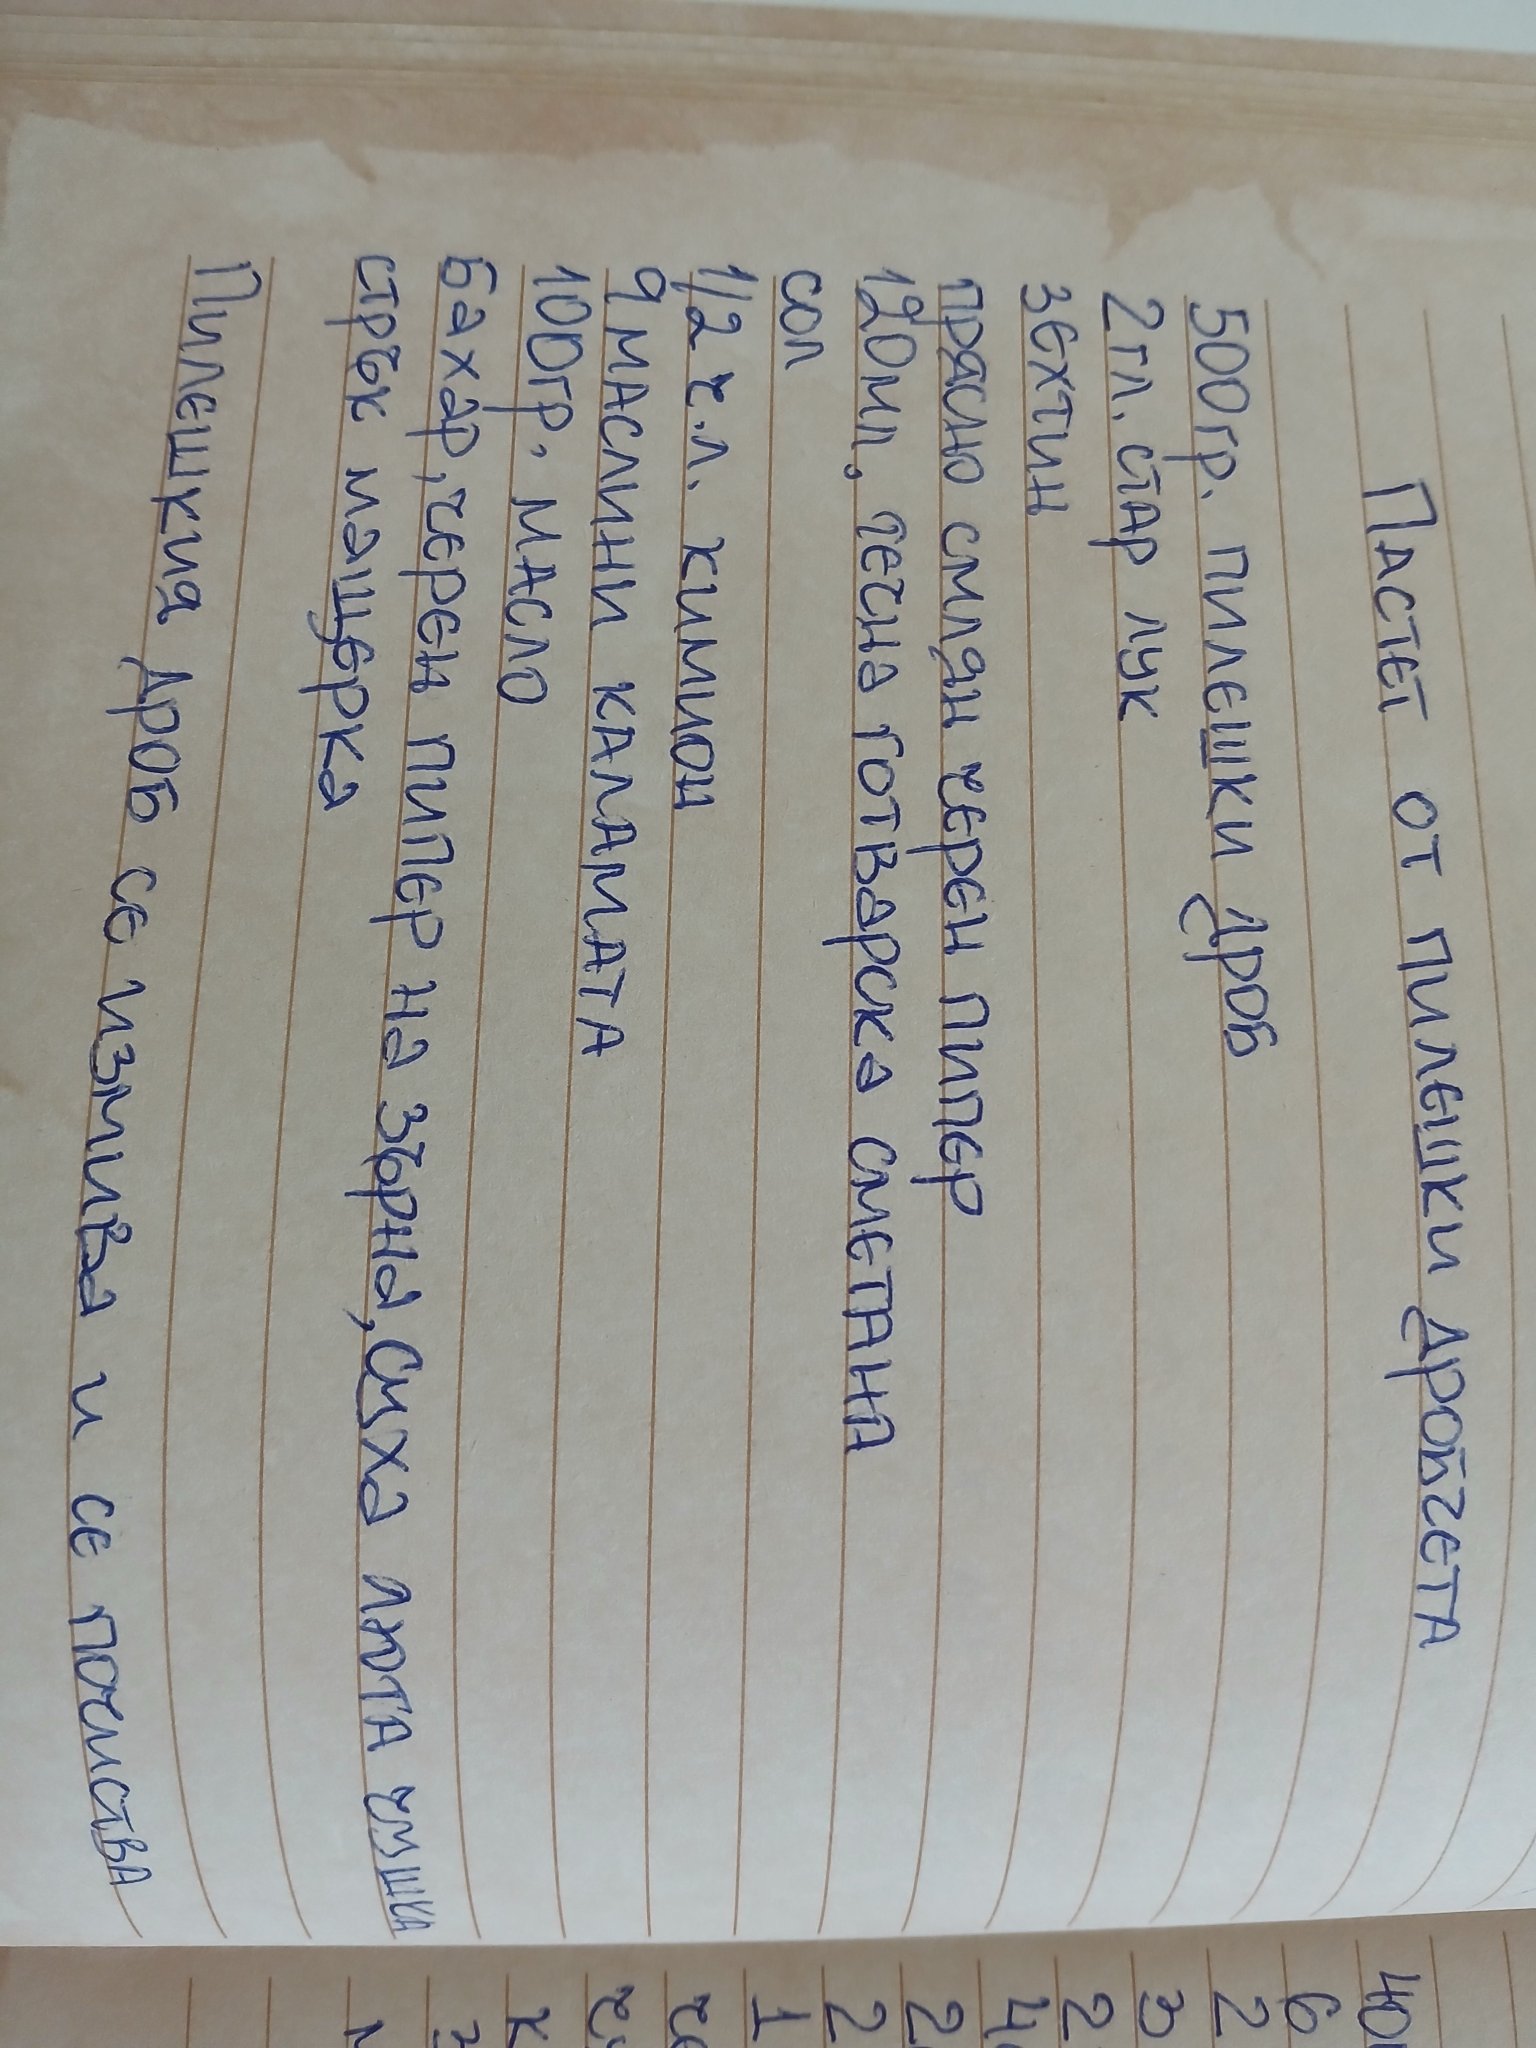 Пастет от пилешки дробчета
500гр. пилешки дроб
2 гл. стар лук
зехтин
прясно смлян черен пипер
120мл. течна готварска сметана
сол
1/2 ч.л. кимион
9 маслини каламата
100гр. масло
бахар, черен пипер на зърна, суха люта чушка
стрък мащерка
Пилешкия дроб се измива и се почиства
40
6
2
3
2
4
2
2
1